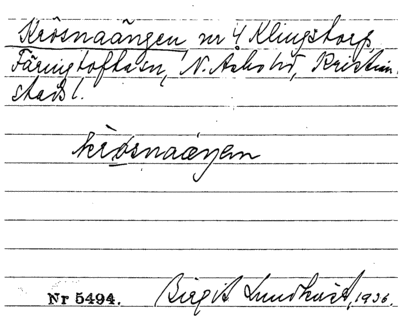 Krösnaängen nr 4 Klingstorp,
Färingtofta sn, N. Åsbo hd, Kristian-
stads l.
krösnaäŋen
Nr 5494. Birgit Lundkvist, 1936.